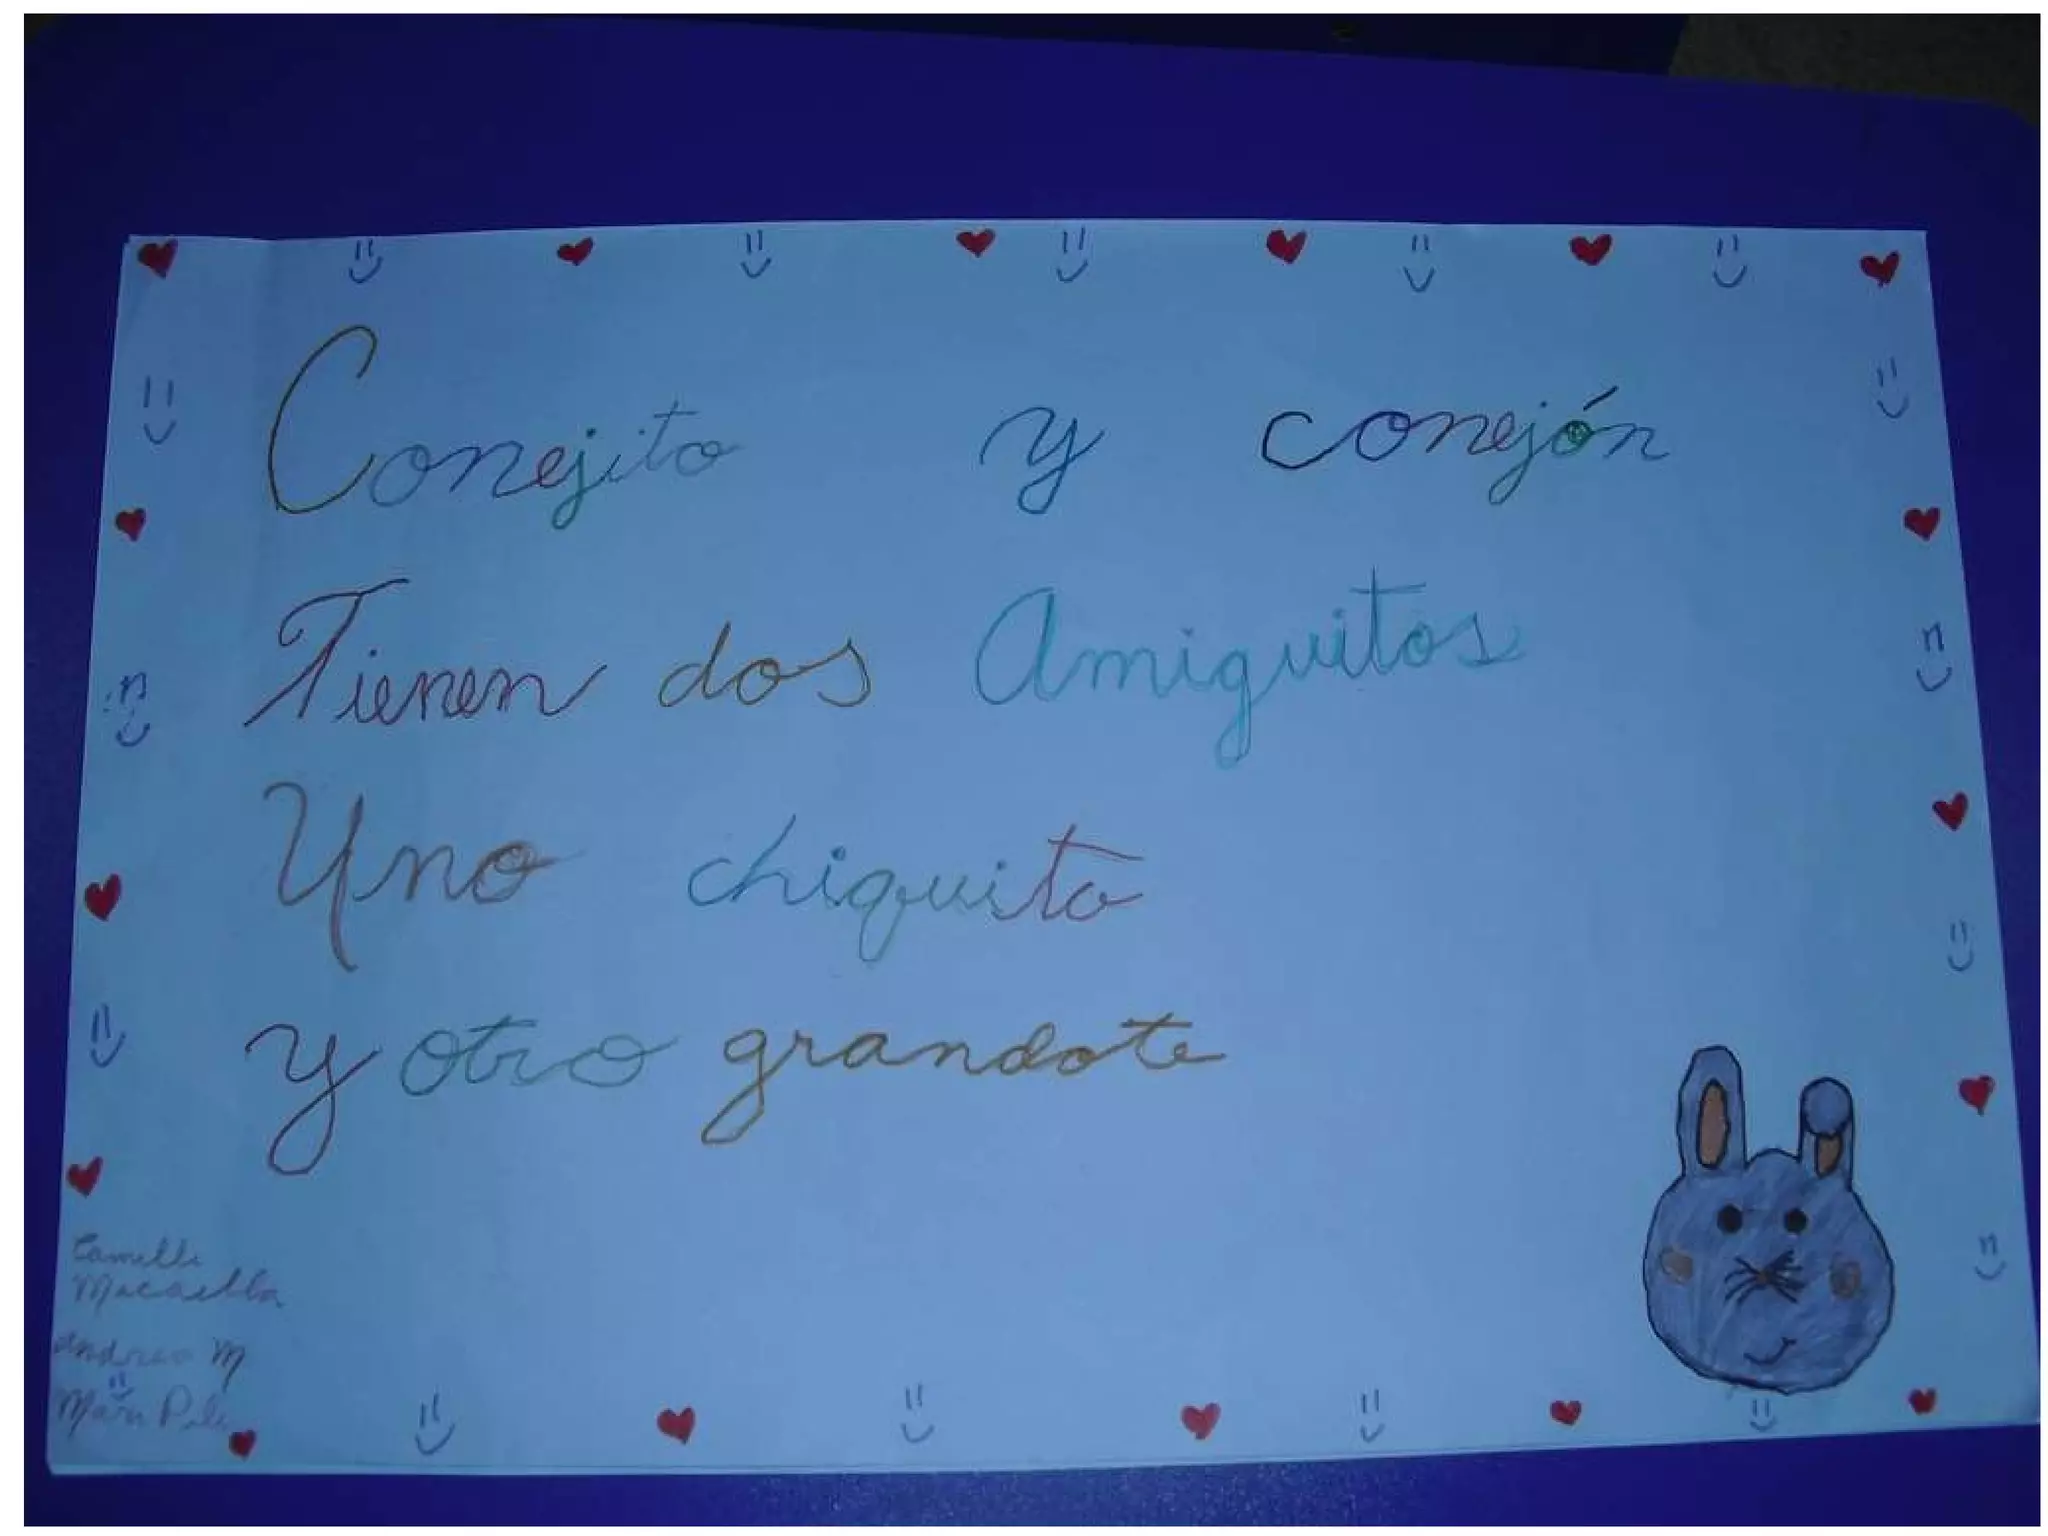 Conejito y conejón
Tienen dos Amiguitos
Uno chiquito
y otro grandote
Camille
Micaella
Andrea M